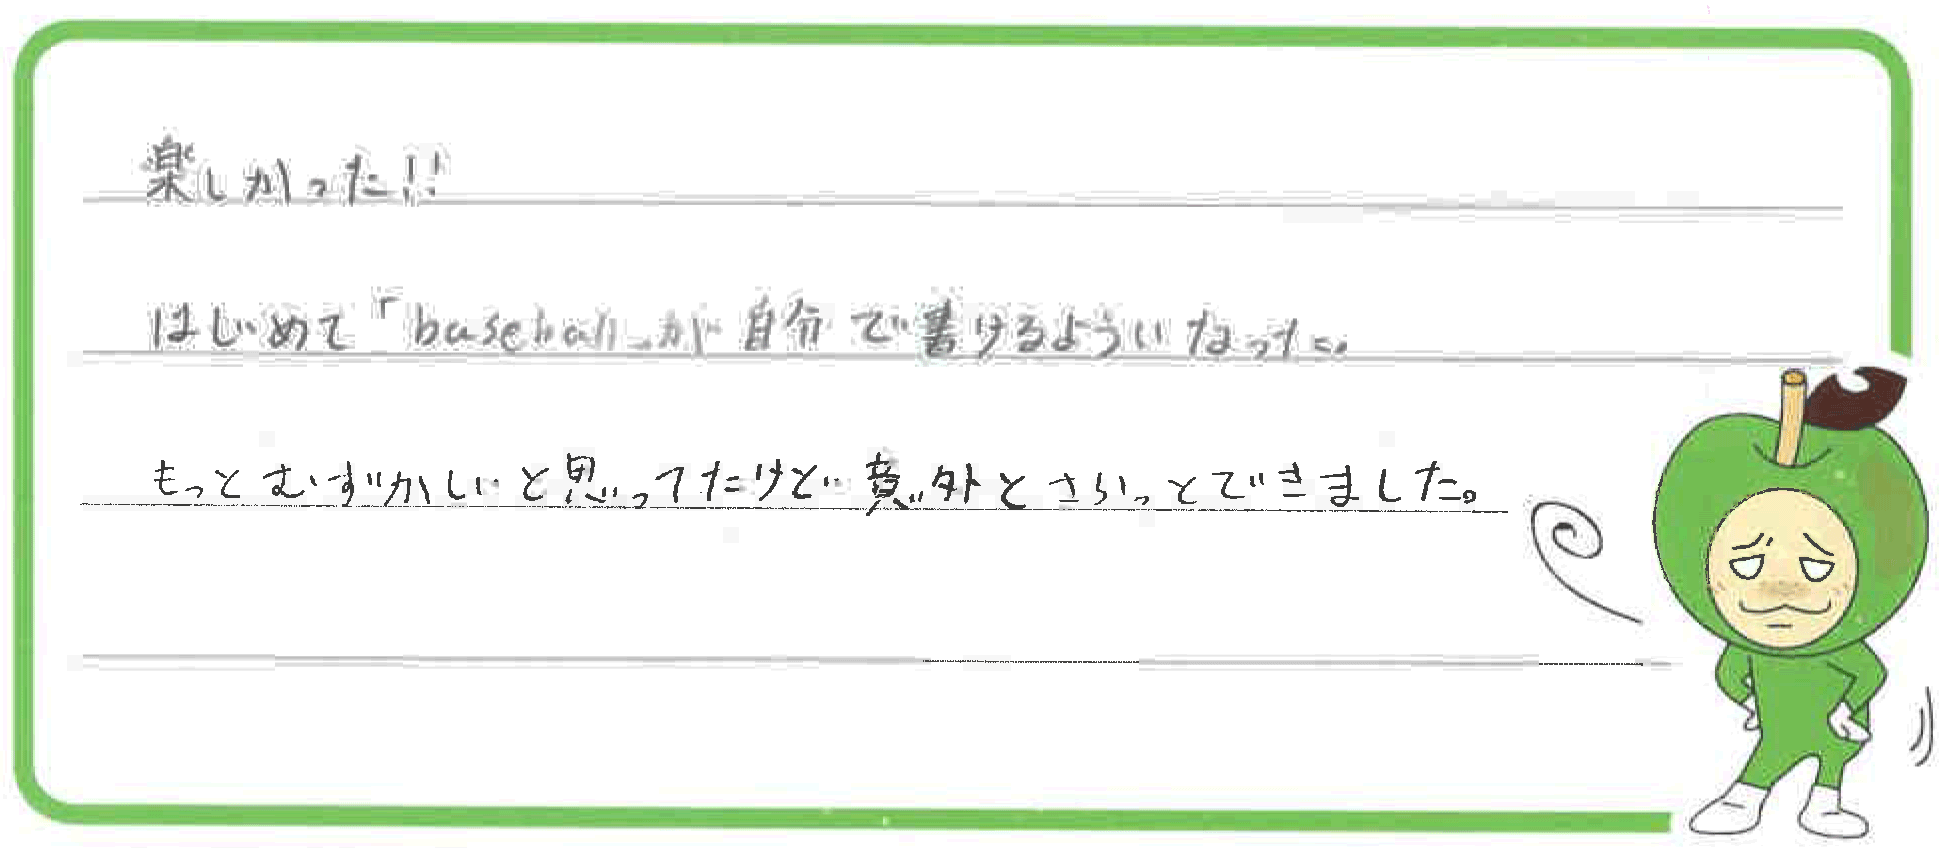 楽しかった!!
はじめて「baseball」が自分で書けるようになった。
もっとむずかしいと思ってたけど意外とさらっとできました。